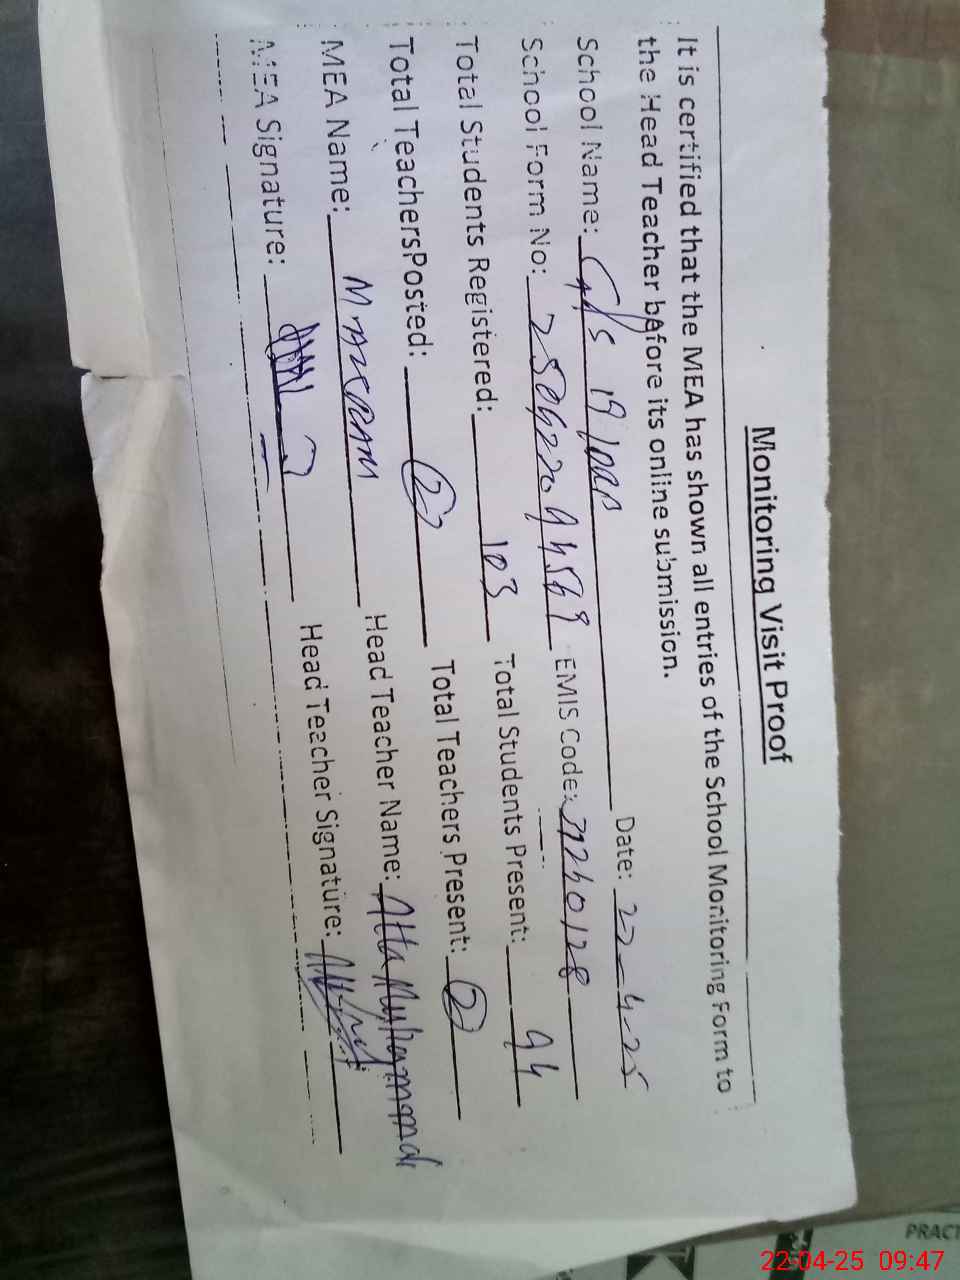 Monitoring Visit Proof
It is certified that the MEA has shown all entries of the School Monitoring Form to
the Head Teacher before its online submission.
School Name: Date: 22-4-25
School Form No: EMIS Code: 31240128
Total Students Registered: 103 Total Students Present: 94
Total TeachersPosted: 2 Total Teachers Present: 2
MEA Name: Head Teacher Name: Atta Muhammad
MEA Signature: Head Teacher Signature:
PRACT
22-04-25 09:47